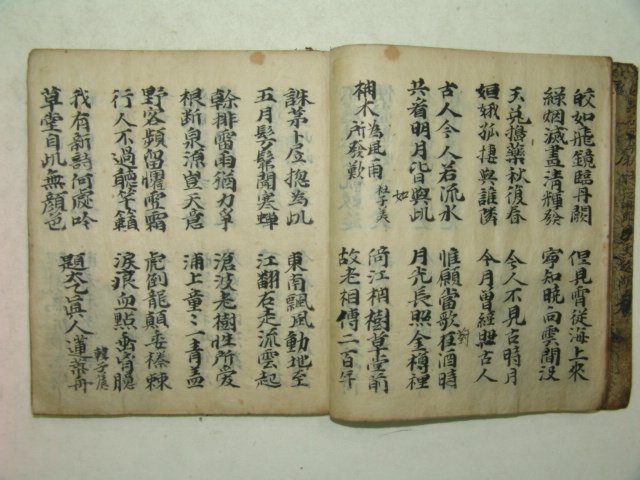 皎如飛鏡臨丹闕
綠烟滅盡清輝發
但見宵從海上來
寧知曉向雲間沒
玉兎搗藥秋復春
姮娥孤棲與誰隣
今人不見古時月
今月曾經照古人
古人今人若流水
共看明月皆與此
如
惟願當歌狂酒時
對
月光長照金樽裡
柟木為風雨
所發歎
杜子美
倚江柟樹草堂前
故老相傳二百年
誅茅卜居揔為此
五月髣髴聞寒蟬
東南飄風動地至
江翻石走流雲起
幹排雷雨猶力爭
根斷泉源豈天意
滄波老樹性所愛
浦上童〻一青盖
野客頻留懼雪霜
行人不過聽竽籟
虎倒龍顛委榛棘
淚痕血點垂胷臆
我有新詩何處吟
草堂自此無顏色
題太乙眞人蓮葉舟
韓子蒼